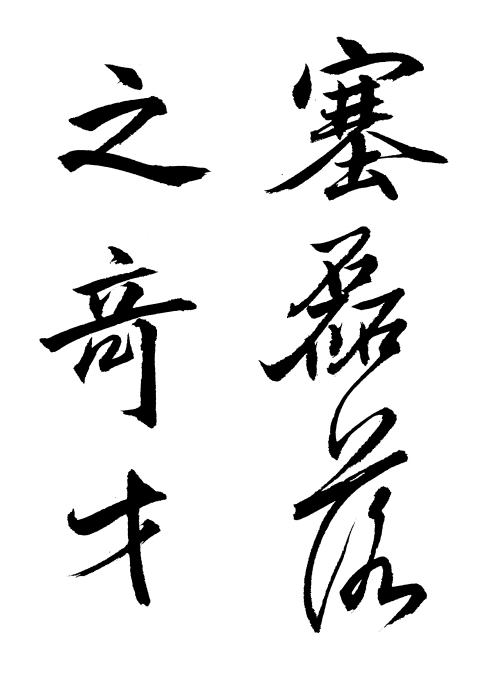 塞磊落
之奇才